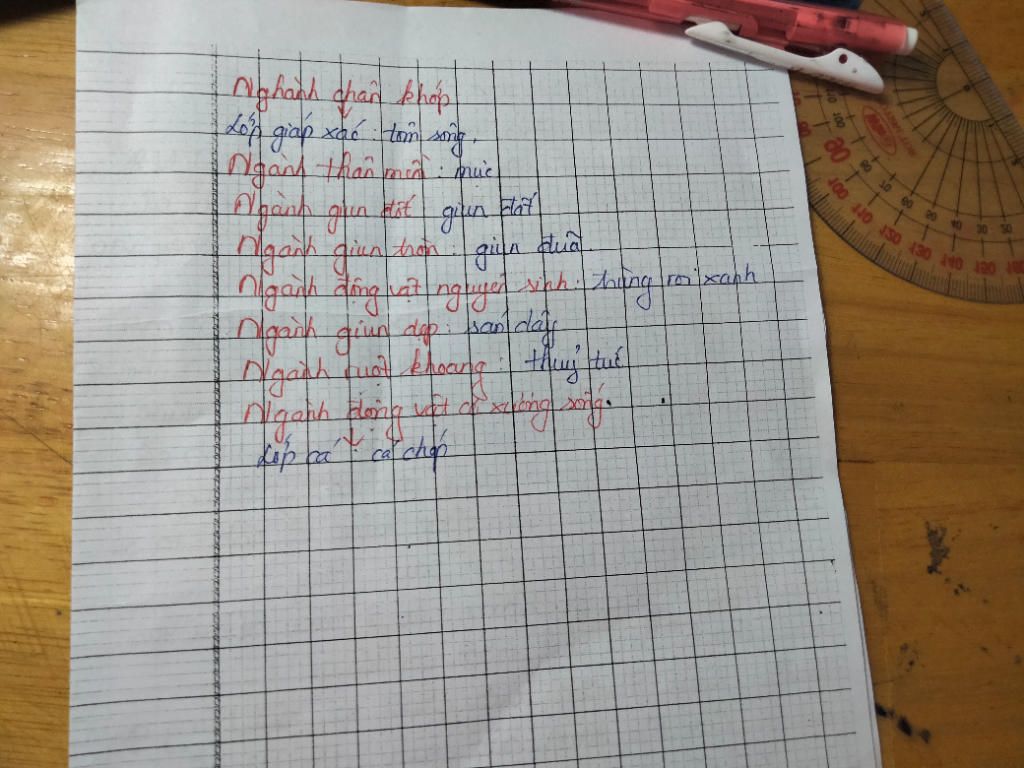 Nghành chân khớp
Lớp giáp xác : tôm sông.
Ngành thân mềm : mực
Ngành giun đốt giun đất
Ngành giun tròn : giun đũa.
Ngành động vật nguyên sinh : trùng roi xanh
Ngành giun dẹp : sán dây
Ngành ruột khoang : thuỷ tức
Ngành động vật có xương sống.
Lớp cá : cá chép